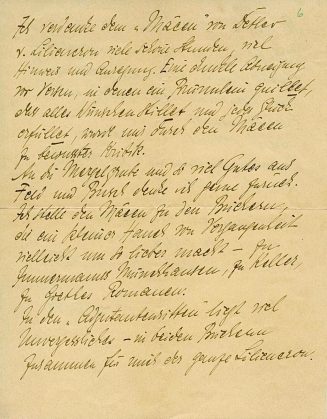 6
Ich verdanke dem „Mäcen" von Detlev
v. Liliencron viele schöne Stunden, viel
Hinweis und Anregung. Eine dunkle Abneigung
vor Versen, in denen ein Brünnlein quillet,
das alles Wünschen stillet und jeden
erfüllet, wurde mir durch den Mäcen
zu bewusster Kritik.
An die Mergelgrube und so viel Gutes aus
Feld und Busch denke ich gerne zurück.
Ich stelle den Mäcen zu den Büchern,
die ein kleiner Hauch von Vergangenheit
vielleicht um so lieber macht – zu
Immermanns Münchhausen, zu Keller,
zu Goethes Romanen.
In den „Adjutantenritten" liegt viel
Unvergessliches – in beiden Büchern
zusammen für mich der ganze Liliencron.